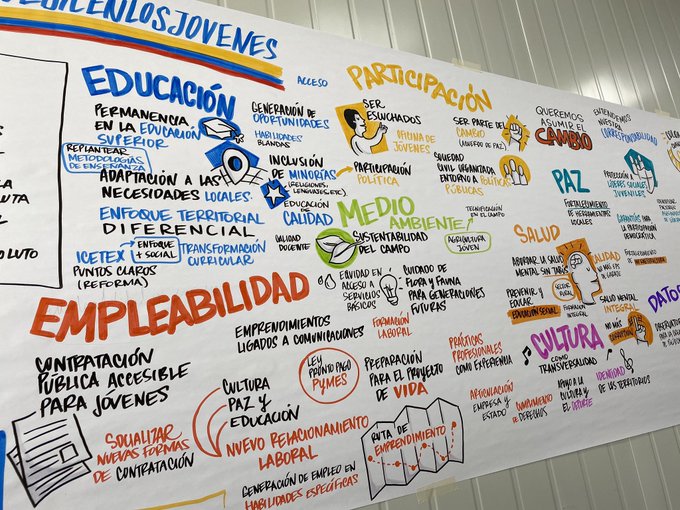 LOS JOVENES
ACCESO
EDUCACIÓN
PERMANENCIA
EN LA EDUCACIÓN
SUPERIOR
REPLANTEAR
METODOLOGÍAS
DE ENSEÑANZA
ADAPTACIÓN A LAS
NECESIDADES LOCALES.
ENFOQUE TERRITORIAL
DIFERENCIAL
ICETEX
PUNTOS CLAROS
(REFORMA)
ENFOQUE
+ SOCIAL
TRANSFORMACIÓN
CURRICULAR
GENERACIÓN DE
OPORTUNIDADES
HABILIDADES
BLANDAS
INCLUSIÓN
DE MINORÍAS
EDUCACIÓN
DE CALIDAD
CALIDAD
DOCENTE
PARTICIPACIÓN
SER
ESCUCHADOS
OFICINA DE
JÓVENES
PARTICIPACIÓN
POLÍTICA
SER PARTE DEL
CAMBIO
(ACUERDO DE PAZ)
SOCIEDAD
CIVIL ORGANIZADA
ENTORNO A POLÍTICAS
PÚBLICAS
QUEREMOS
ASUMIR EL
CAMBIO
ENTENDEMOS
NUESTRA
CORRESPONSABILIDAD
PAZ
FORTALECIMIENTO
DE HERRAMIENTAS
LOCALES
PROTECCIÓN A
LÍDERES SOCIALES
JUVENILES
GARANTÍAS PARA
LA PARTICIPACIÓN
DEMOCRÁTICA
MEDIO
AMBIENTE
SUSTENTABILIDAD
DEL CAMPO
TECNIFICACIÓN
EN EL CAMPO
AGRICULTURA
JOVEN
EQUIDAD EN
ACCESO A
SERVICIOS
BÁSICOS
CUIDADO DE
FLORA Y FAUNA
PARA GENERACIONES
FUTURAS
SALUD
ABORDAR LA SALUD
MENTAL SIN TABÚ
PREVENIR Y
EDUCAR
EDUCACIÓN SEXUAL
SECTOR
RURAL
FORMACIÓN
INTEGRAL
CALIDAD
SALUD MENTAL
INTEGRAL
NO MÁS
DATOS
EMPLEABILIDAD
CONTRATACIÓN
PÚBLICA ACCESIBLE
PARA JÓVENES
SOCIALIZAR
NUEVAS FORMAS
DE CONTRATACIÓN
EMPRENDIMIENTOS
LIGADOS A COMUNICACIONES
CULTURA
PAZ Y
EDUCACIÓN
NUEVO RELACIONAMIENTO
LABORAL
GENERACIÓN DE EMPLEO EN
HABILIDADES ESPECÍFICAS
LEY
PRONTO PAGO
PYMES
FORMACIÓN
LABORAL
PREPARACIÓN
PARA EL PROYECTO
DE VIDA
RUTA DE
EMPRENDIMIENTO
PRÁCTICAS
PROFESIONALES
COMO EXPERIENCIA
ARTICULACIÓN
EMPRESA Y
ESTADO
CULTURA
COMO
TRANSVERSALIDAD
CUMPLIMIENTO
DE DERECHOS
APOYO A LA
CULTURA Y
EL DEPORTE
IDENTIDAD
DE LOS TERRITORIOS